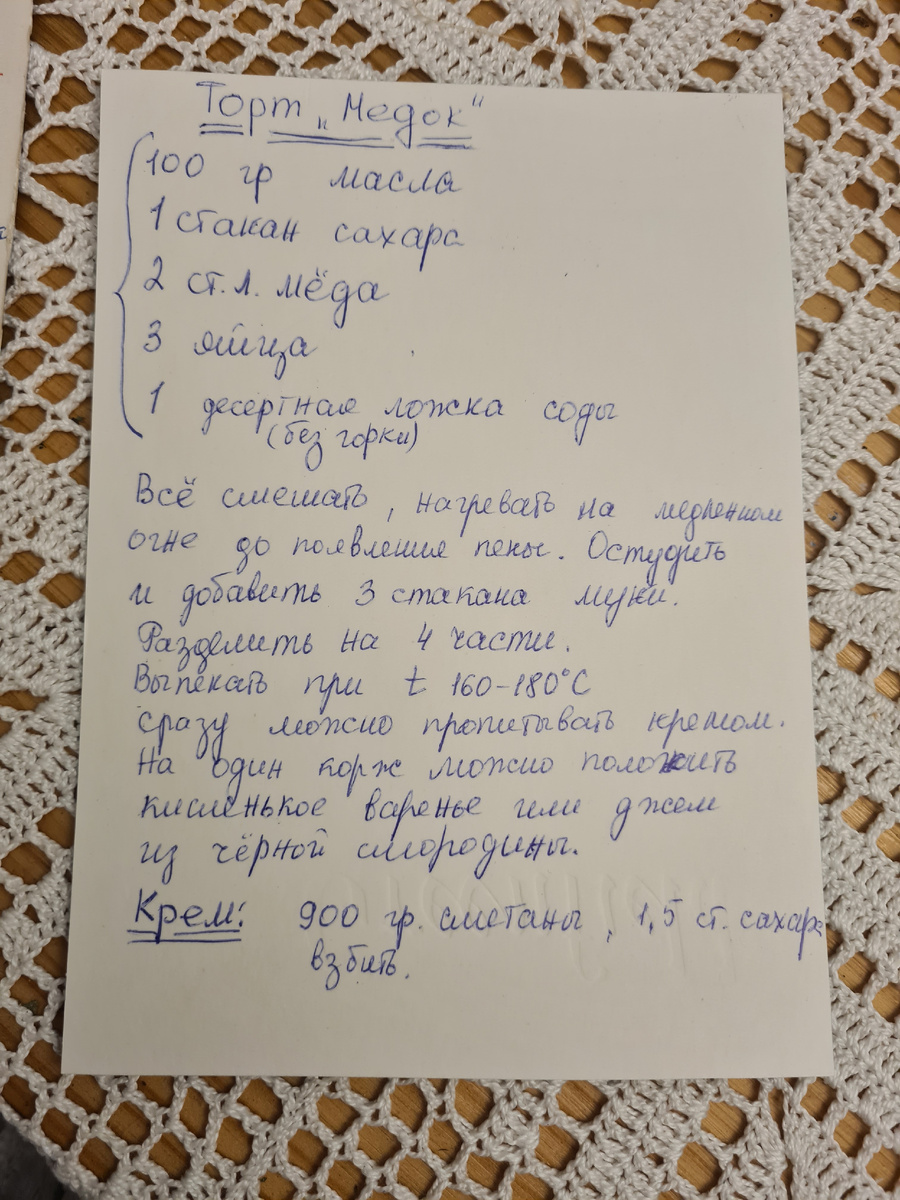 Торт „Медок“
100 гр масла
1 стакан сахара
2 ст.л. мёда
3 яйца
1 десертная ложка соды
(без горки)
Всё смешать, нагревать на медленном
огне до появления пены. Остудить
и добавить 3 стакана муки.
Разделить на 4 части.
Выпекать при t 160-180°C
сразу можно пропитывать кремом.
На один корж можно положить
кисленькое варенье или джем
из чёрной смородины.
Крем: 900 гр. сметаны, 1,5 ст. сахара
взбить.